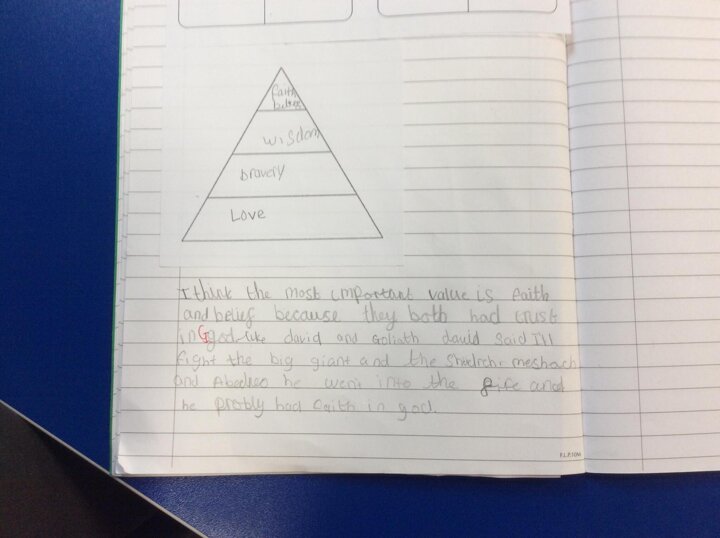 faith
belief
wisdom
bravery
Love
I think the most important value is faith
and belief because they both had trust
in God like david and Goliath david said I'll
fight the big giant and the meshach
and Abedneo he went into the fire and
he probly had faith in god.